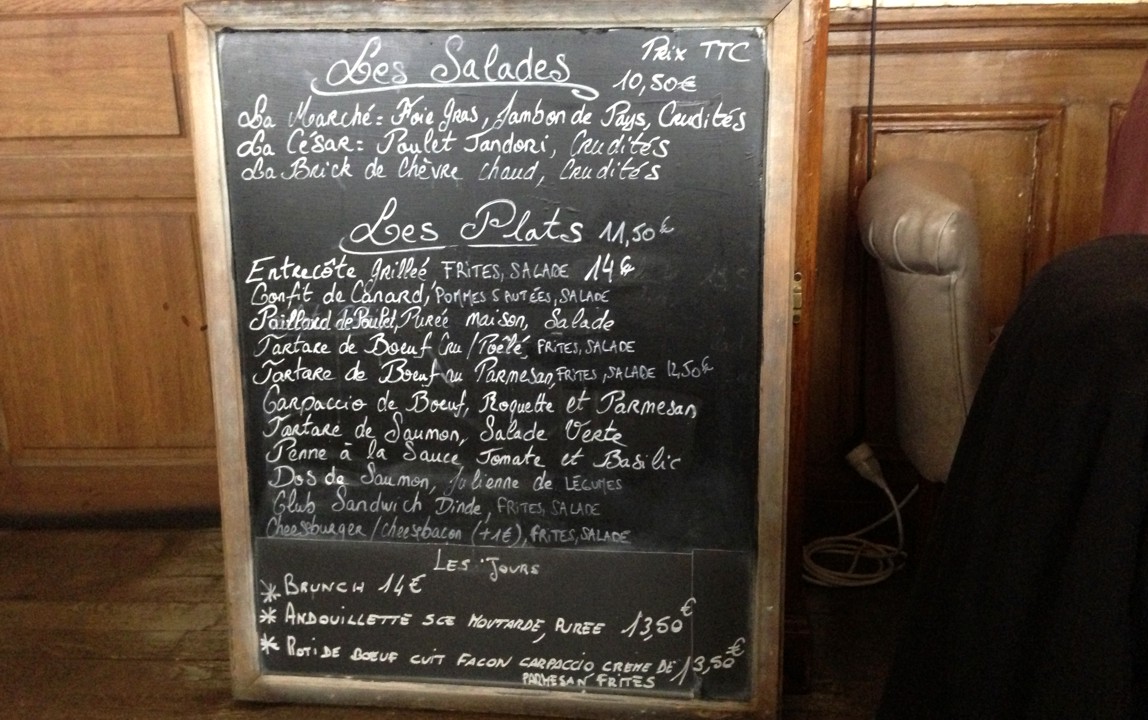 Les Salades Prix TTC
10,50€
La Marché: Foie Gras, Jambon de Pays, Crudités
La César: Poulet Tandori, Crudités
La Brick de Chèvre chaud, Crudités
Les Plats 11,50€
Entrecôte grilleé FRITES, SALADE 14€
Confit de Canard, POMMES SAUTÉES, SALADE
Paillard de Poulet, Pureé maison, Salade
Tartare de Boeuf Cru/Poêlé, FRITES, SALADE
Tartare de Boeuf au Parmesan, FRITES, SALADE 12,50€
Carpaccio de Boeuf, Roquette et Parmesan
Tartare de Saumon, Salade Verte
Penne à la Sauce Tomate et Basilic
Dos de Saumon, Julienne de LÉGUMES
Club Sandwich Dinde, FRITES, SALADE
Cheeseburger/cheesebacon (+1€), FRITES, SALADE
LES JOURS
* BRUNCH 14€
* ANDOUILLETTE SCE MOUTARDE, PUREE 13,50€
* ROTI DE BOEUF CUIT FACON CARPACCIO CREME DE 13,50€
PARMESAN FRITES